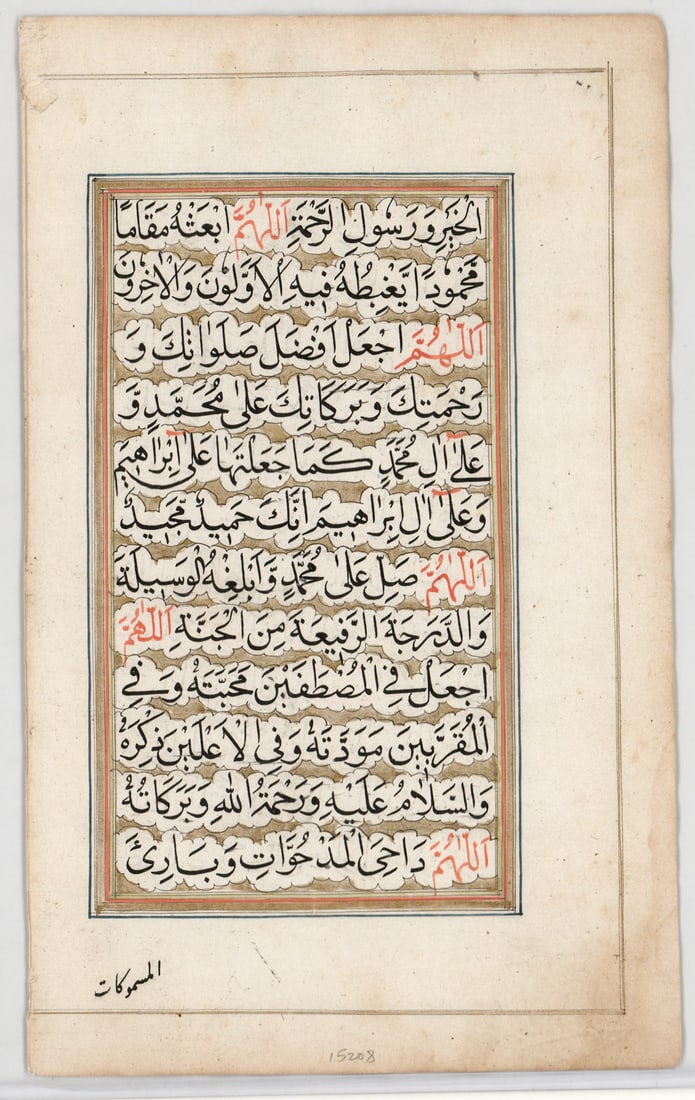 الْخَيْرِ وَرَسُولِ الرَّحْمَةِ اَللّٰهُمَّ ابْعَثْهُ مَقَامًا
مَّحْمُوْدًا يَّغْبِطُهُ فِيْهِ الْاَوَّلُوْنَ وَالْاٰخِرُوْنَ
اَللّٰهُمَّ اجْعَلْ اَفْضَلَ صَلَوَاتِكَ وَ
رَحْمَتِكَ وَبَرَكَاتِكَ عَلٰى مُحَمَّدٍ وَّ
عَلٰٓى اٰلِ مُحَمَّدٍ كَمَا جَعَلْتَهَا عَلٰٓى اِبْرَاهِيْمَ
وَعَلٰٓى اٰلِ اِبْرَاهِيْمَ اِنَّكَ حَمِيْدٌ مَّجِيْدٌ
اَللّٰهُمَّ صَلِّ عَلٰى مُحَمَّدٍ وَّاَبْلِغْهُ الْوَسِيْلَةَ
وَالدَّرَجَةَ الرَّفِيْعَةَ مِنَ الْجَنَّةِ اَللّٰهُمَّ
اجْعَلْ فِى الْمُصْطَفَيْنَ مَحَبَّتَهُ وَفِى
الْمُقَرَّبِيْنَ مَوَدَّتَهُ وَفِى الْاَعْلَيْنَ ذِكْرَهُ
وَالسَّلَامُ عَلَيْهِ وَرَحْمَةُ اللهِ وَبَرَكَاتُهُ
اَللّٰهُمَّ دَاحِىَ الْمَدْحُوَّاتِ وَبَارِئَ
المسموكات
15208